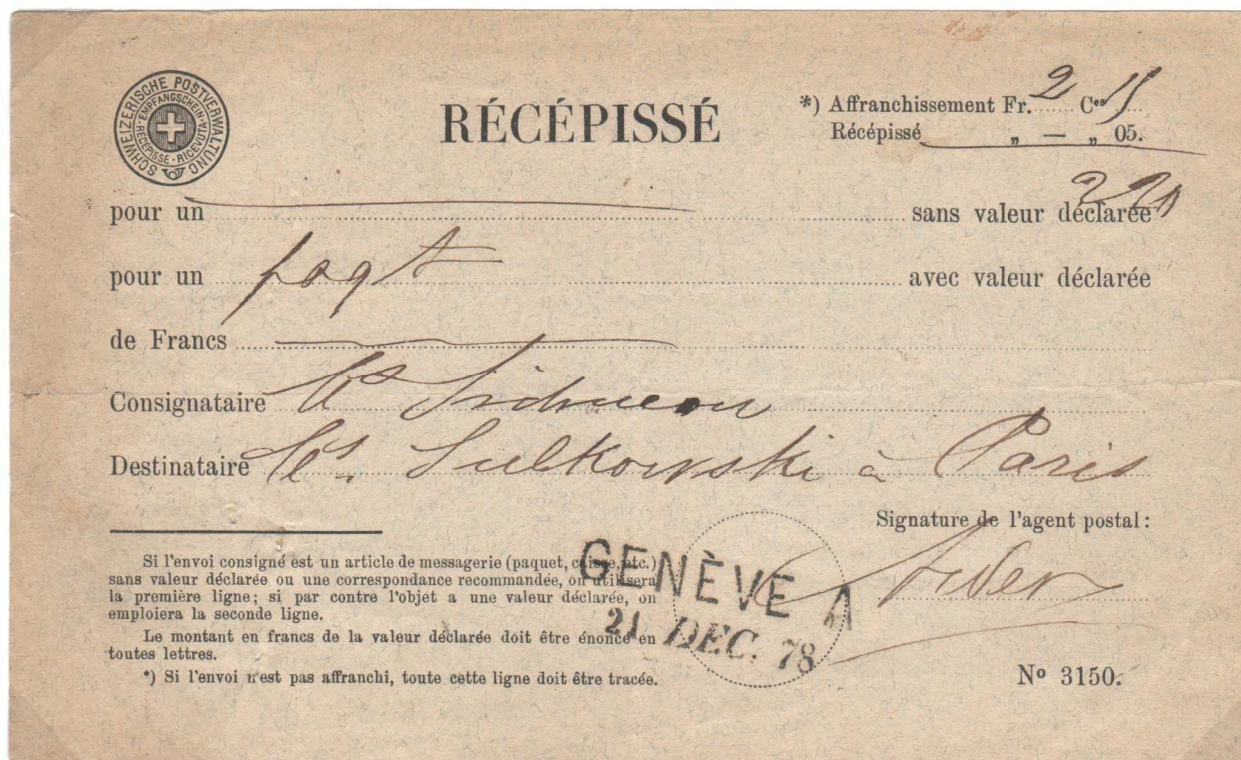 SCHWEIZERISCHE POSTVERWALTUNG
EMPFANGSCHEIN · RICEVUTA · RÉCÉPISSE ·
RÉCÉPISSÉ
*) Affranchissement Fr. 2 Ces 15
Récépissé „ — „ 05.
220
pour un sans valeur déclarée
pour un paqt avec valeur déclarée
de Francs
Consignataire
Destinataire Sulkowski à Paris
Signature de l'agent postal:
Si l'envoi consigné est un article de messagerie (paquet, caisse, etc.)
sans valeur déclarée ou une correspondance recommandée, on utilisera
la première ligne; si par contre l'objet a une valeur déclarée, on
emploiera la seconde ligne.
Le montant en francs de la valeur déclarée doit être énoncé en
toutes lettres.
*) Si l'envoi n'est pas affranchi, toute cette ligne doit être tracée.
GENÈVE A
21 DEC. 78
No 3150.